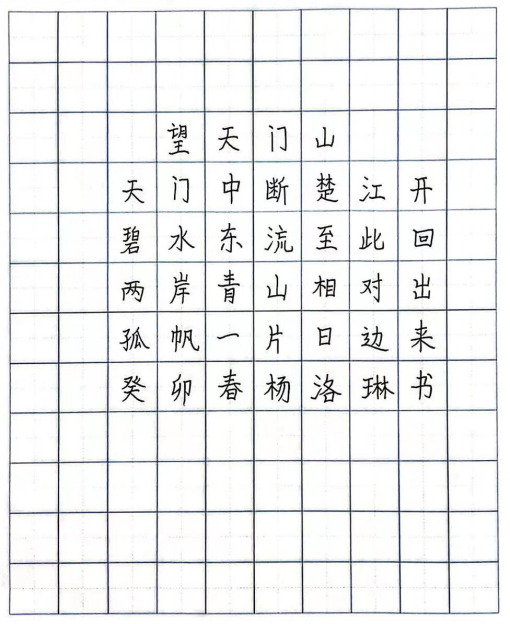 望天门山
天门中断楚江开
碧水东流至此回
两岸青山相对出
孤帆一片日边来
癸卯春杨洛琳书